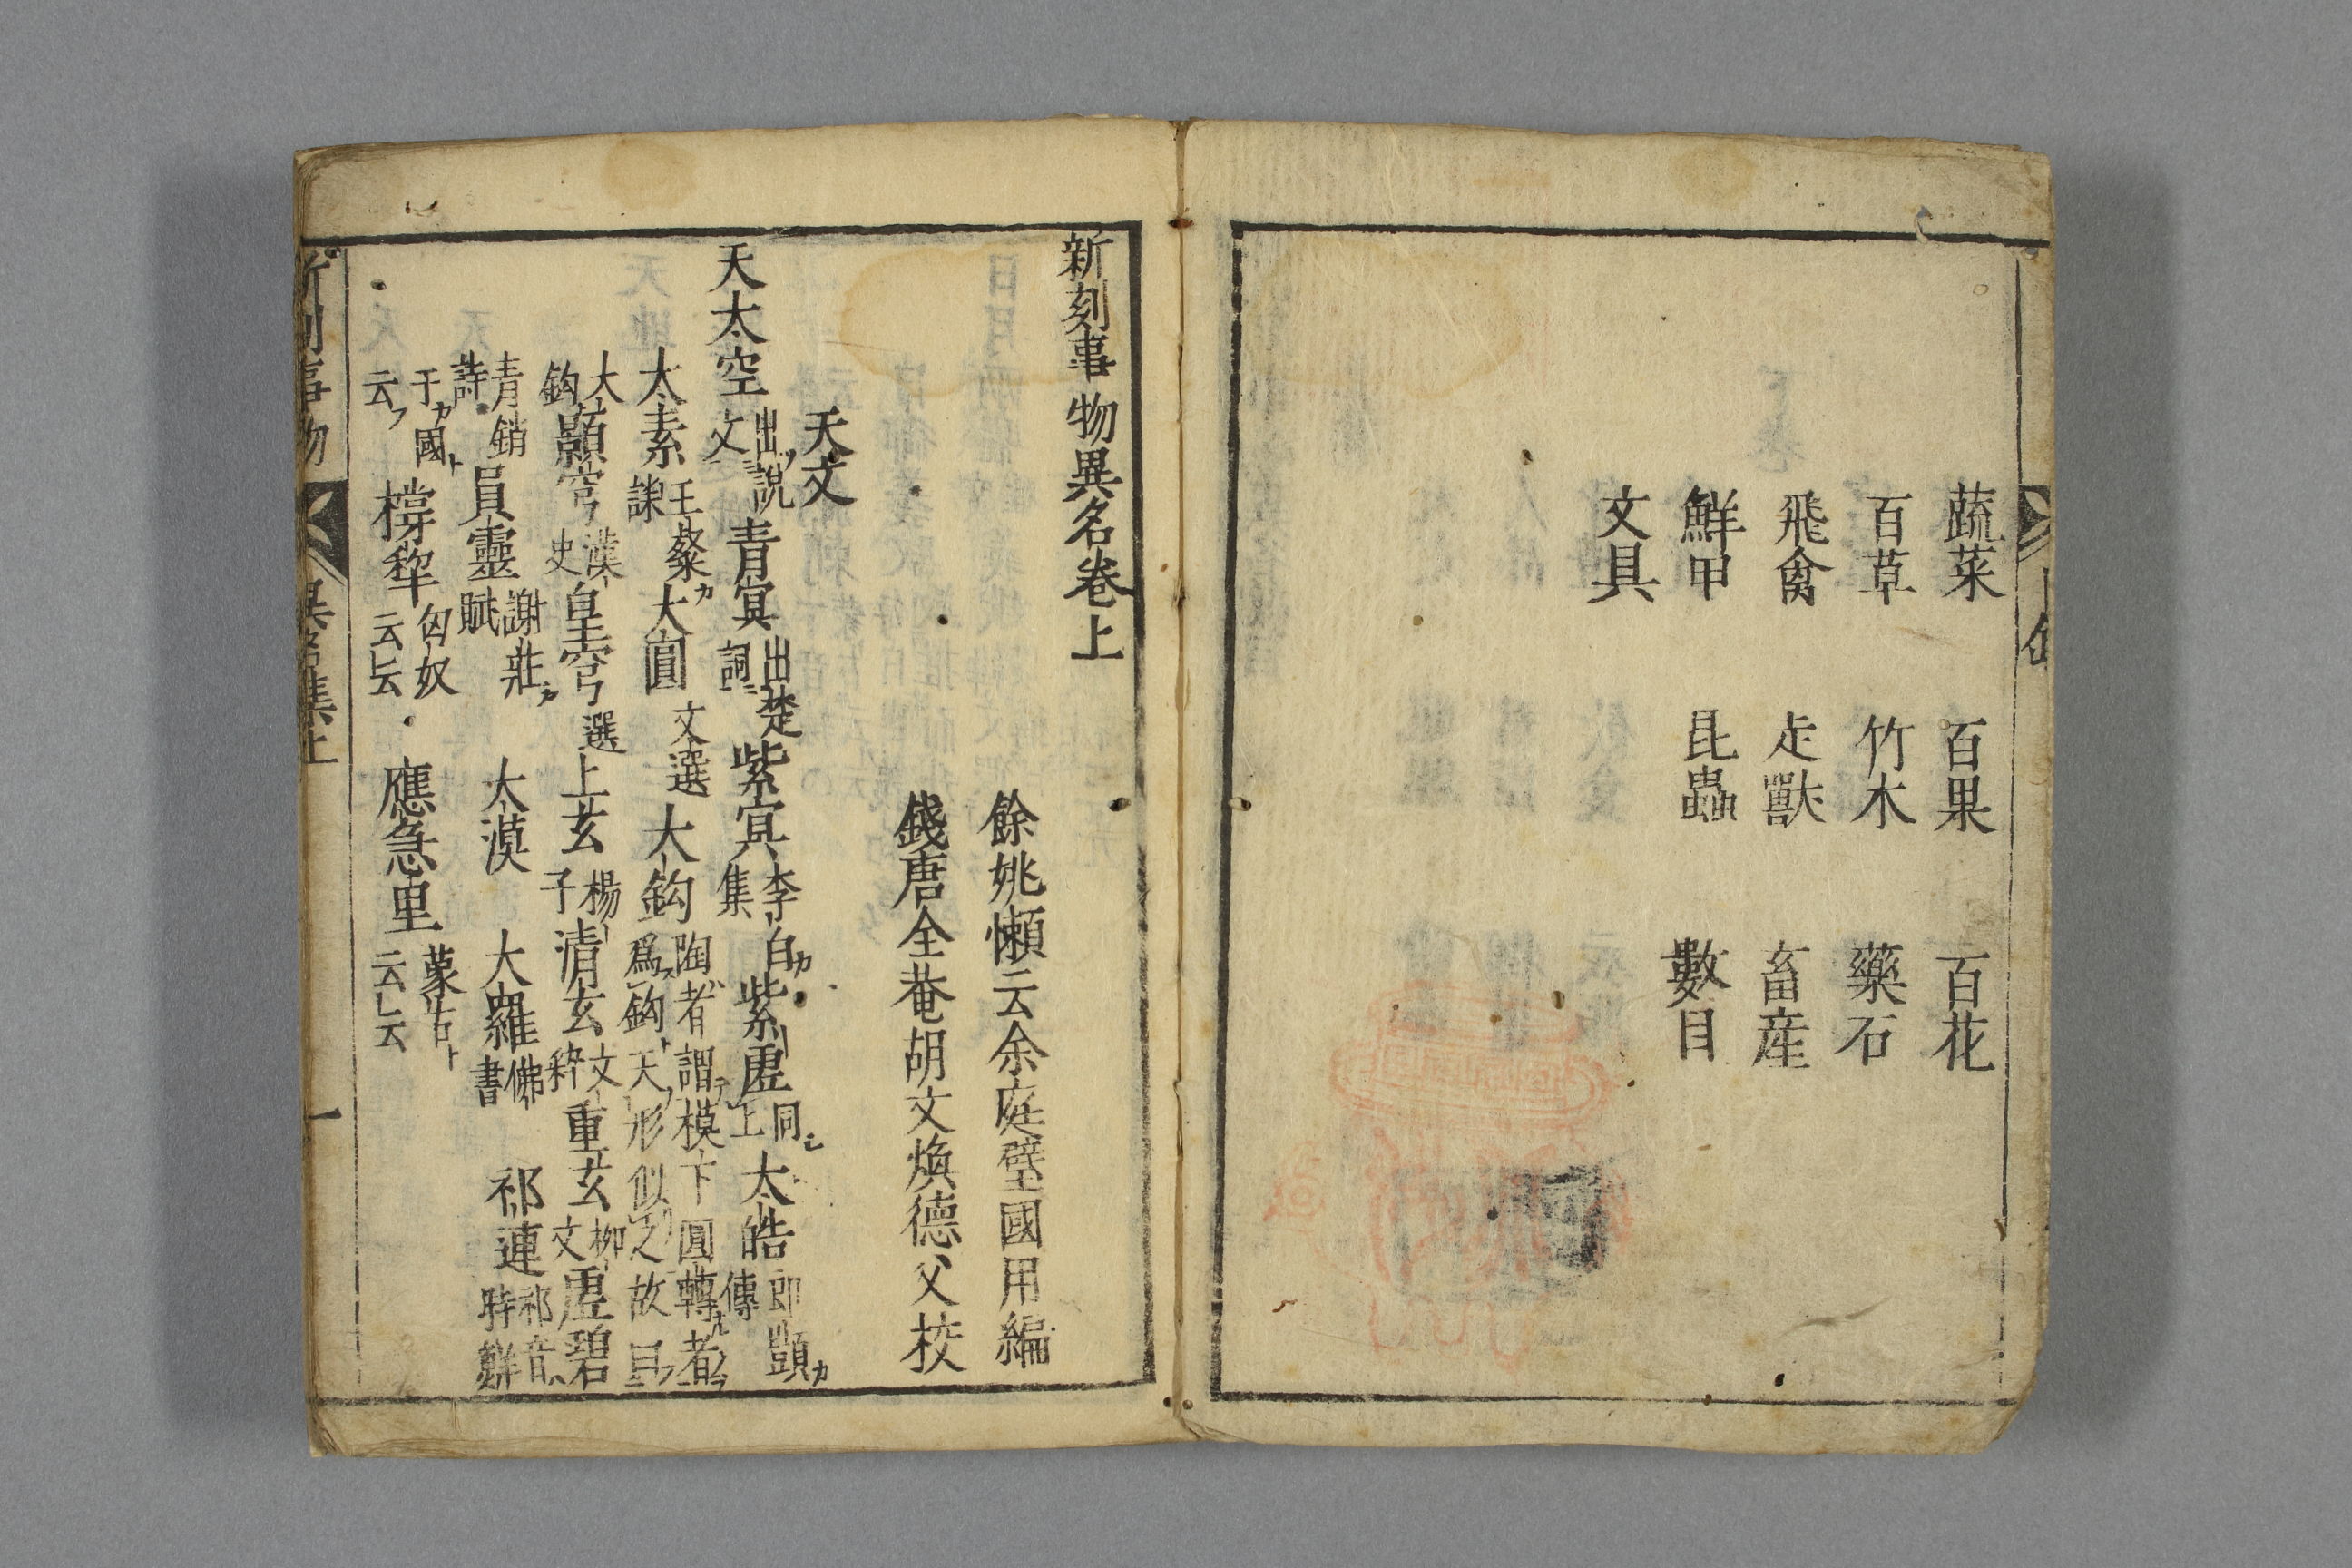 蔬菜 百果 百花
百草 竹木 藥石
飛禽 走獸 畜産
鮮甲 昆蟲 數目
文具
新刻事物異名卷上
餘姚懶云余庭璧國用編
錢唐全菴胡文煥德父校
天文
天太空出說文青冥出楚詞紫冥李白集紫虛同上太皓即顥傳
太素王粲誄大圓文選大鈞陶者謂模下圓轉者爲鈞天形似之故曰
大鈞顥穹漢史皇穹選上玄楊子清玄文粹重玄柳文虛碧
青銷詩員靈謝莊賦 大漠 大羅佛書 祁連祁音時鮮
于國云撐犂匈奴云云 應急里蒙古云云
新刻事物異名集上 一